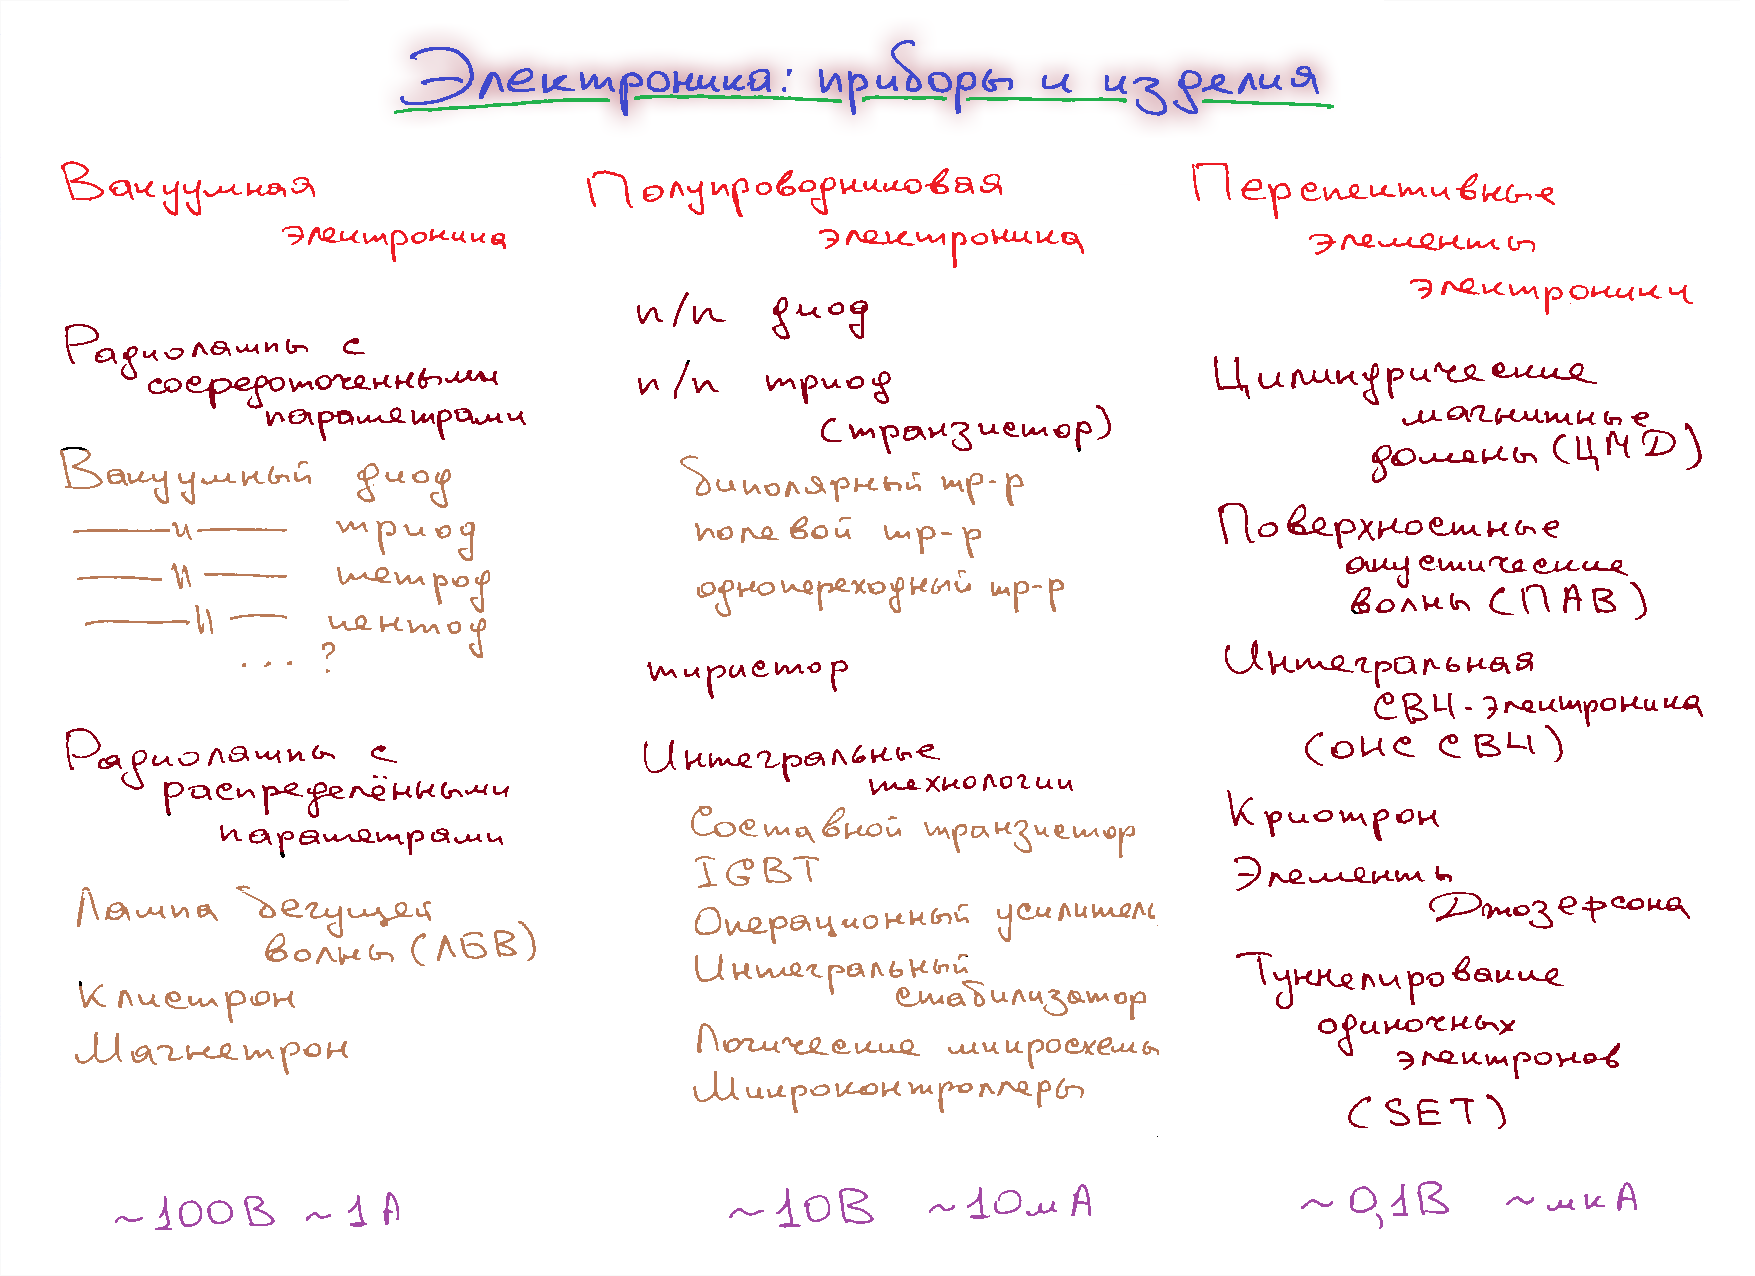 Электроника: приборы и изделия
Вакуумная
электроника
Радиолампы с
сосредоточенными
параметрами
Вакуумный диод
—— и —— триод
—— и —— тетрод
—— и —— пентод
... ?
Радиолампы с
распределёнными
параметрами
Лампа бегущей
волны (ЛБВ)
Клистрон
Магнетрон
~100В ~1А
Полупроводниковая
электроника
п/п диод
п/п триод
(транзистор)
биполярный тр-р
полевой тр-р
однопереходный тр-р
тиристор
Интегральные
технологии
Составной транзистор
IGBT
Операционный усилитель
Интегральный
стабилизатор
Логические микросхемы
Микроконтроллеры
~10В ~10мА
Перспективные
элементы
электроники
Цилиндрические
магнитные
домены (ЦМД)
Поверхностные
акустические
волны (ПАВ)
Интегральная
СВЧ-электроника
(ОИС СВЧ)
Криотрон
Элементы
Джозефсона
Туннелирование
одиночных
электронов
(SET)
~0,1В ~мкА